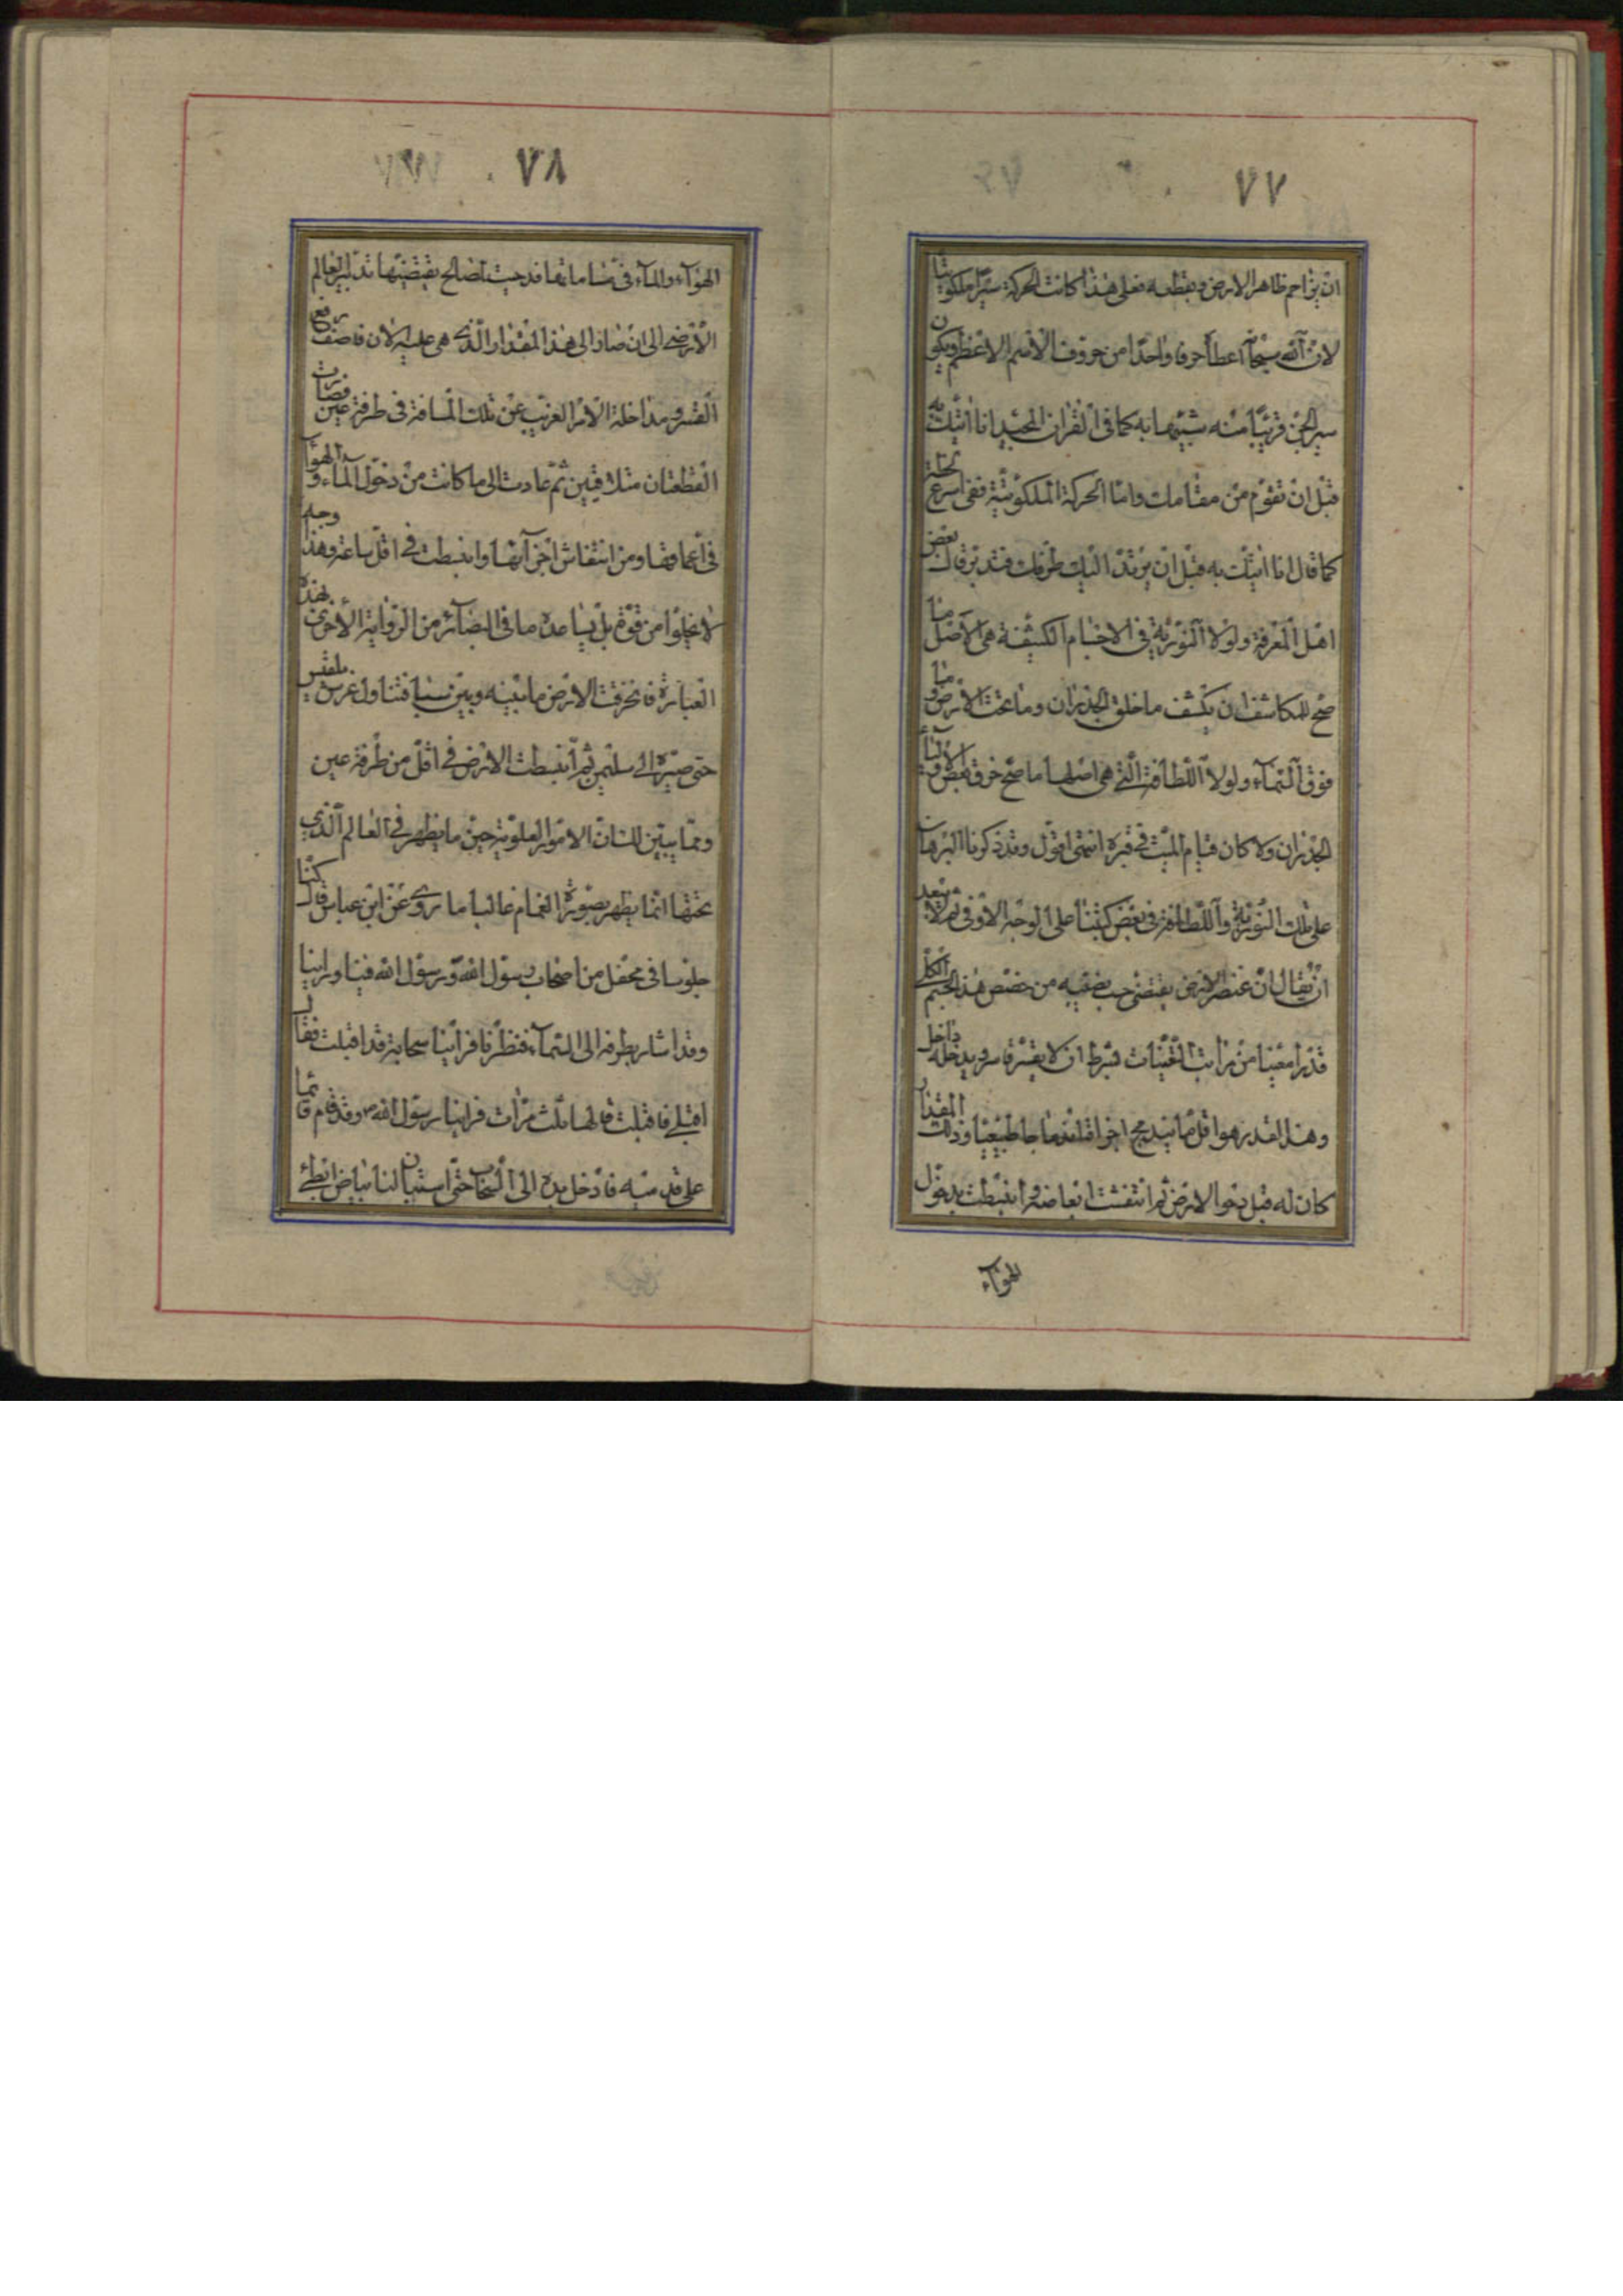 ٧٧
ان يزاحم ظاهر الارض ويقطعه فعلى هذا كانت الحركة سيرا ملكوتيا
لان الله سبحانه اعطاه حرفا واحدا من حروف الاسم الاعظم ويكون
سير الجن قريبا منه شبيها به كما فى القران المجيد انا اتيك به
قبل ان تقوم من مقامك واما الحركة الملكوتية ففى اسرع لحظة
كما قال انا اتيك به قبل ان يرتد اليك طرفك فتدبر قال بعض
اهل المعرفة ولولا النورية فى الاجسام الكثيفة هى الاصل ما
صح للمكاشف ان يكشف ما خلف الجدران وما تحت الارض وما
فوق السماء ولولا اللطافة التى هى اصلها ما صح خرق بعض الاولياء
الجدران ولا كان قيام الميت فى قبره انتهى اقول وقد ذكرنا البرهان
على تلك النورية واللطافة فى بعض كتبنا على الوجه الاوفى ثم لا يبعد
ان يقال ان عنصر الارض يقتضى حسب نصيبه من حصص هذا الجسم الكلى
قدرا معينا من مراتب التعينات بشرط ان لا يقسره قاسر ويدخله داخل
وهذا القدر هو اقل ما يندمج اجزائه اندماجا طبيعيا وذلك المقدار
كان له قبل دحو الارض ثم انتفشت ابعاضه وانبسطت بدخول
الهوآء
٧٨
الهوآء والمآء فى مساماتها قد حيث مصالح يقتضيها تدبير العالم
الارضى الى ان صار الى هذا المقدار الذى هى عليه الان فاصف رفع
القسر ومداخلة الامر الغريب عن تلك المسافة فى طرفة عين فصارت
القطعتان متلاقيتين ثم عادت الى ما كانت من دخول الماء والهوآء
فى اعماقها ومن انتفاش اجزآئها وانبسطت فى اقل ساعة وهذا وجه
لا يخلوا من قوة بل يساعده ما فى البصآئر من الرواية الاخرى بهذه
العبارة فانخرقت الارض ما بينه وبين سبا فتناول عرش بلقيس
حتى صيره الى سليمن ثم انبسطت الارض فى اقل من طرفة عين
ومما يبين لك ان الامور العلوية حين ما يظهر فى العالم الذى
تحتها انما يظهر بصورة الغمام غالبا ما روى عن ابن عباس قال كنا
جلوسا فى محفل من اصحاب رسول الله ورسول الله فينا وراينا
وقد اشار بطرفه الى السمآء فنظرنا فراينا سحابة قد اقبلت فقال
اقبلى فاقبلت قالها ثلث مرات فراينا رسول الله ص وقد قام قائما
على قدميه فادخل يده الى السحاب حتى استبان لنا بياض ابطى